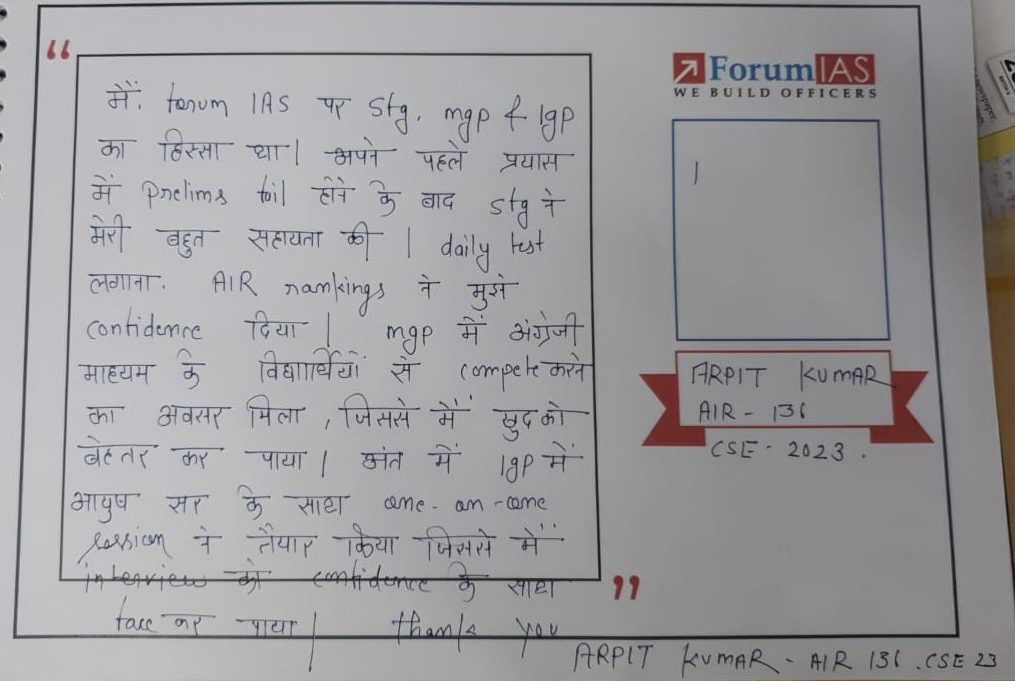 “
मैं. forum IAS पर sfg, mgp & Igp
का हिस्सा था। अपने पहले प्रयास
में prelims fail होने के बाद sfg ने
मेरी बहुत सहायता की | daily test
लगाना. AIR rankings ने मुझे
confidence दिया | mgp में अंग्रेजी
माध्यम के विद्यार्थियों से compete करने
का अवसर मिला, जिससे मैं खुद को
बेहतर कर पाया | अंत में Igp में
आयुष सर के साथ one-on-one
session ने तैयार किया जिससे मैं
interview को confidence के साथ
face कर पाया | thank you
”
ForumIAS
WE BUILD OFFICERS
ARPIT KUMAR
AIR - 136
CSE - 2023.
ARPIT KUMAR - AIR 136. CSE 23